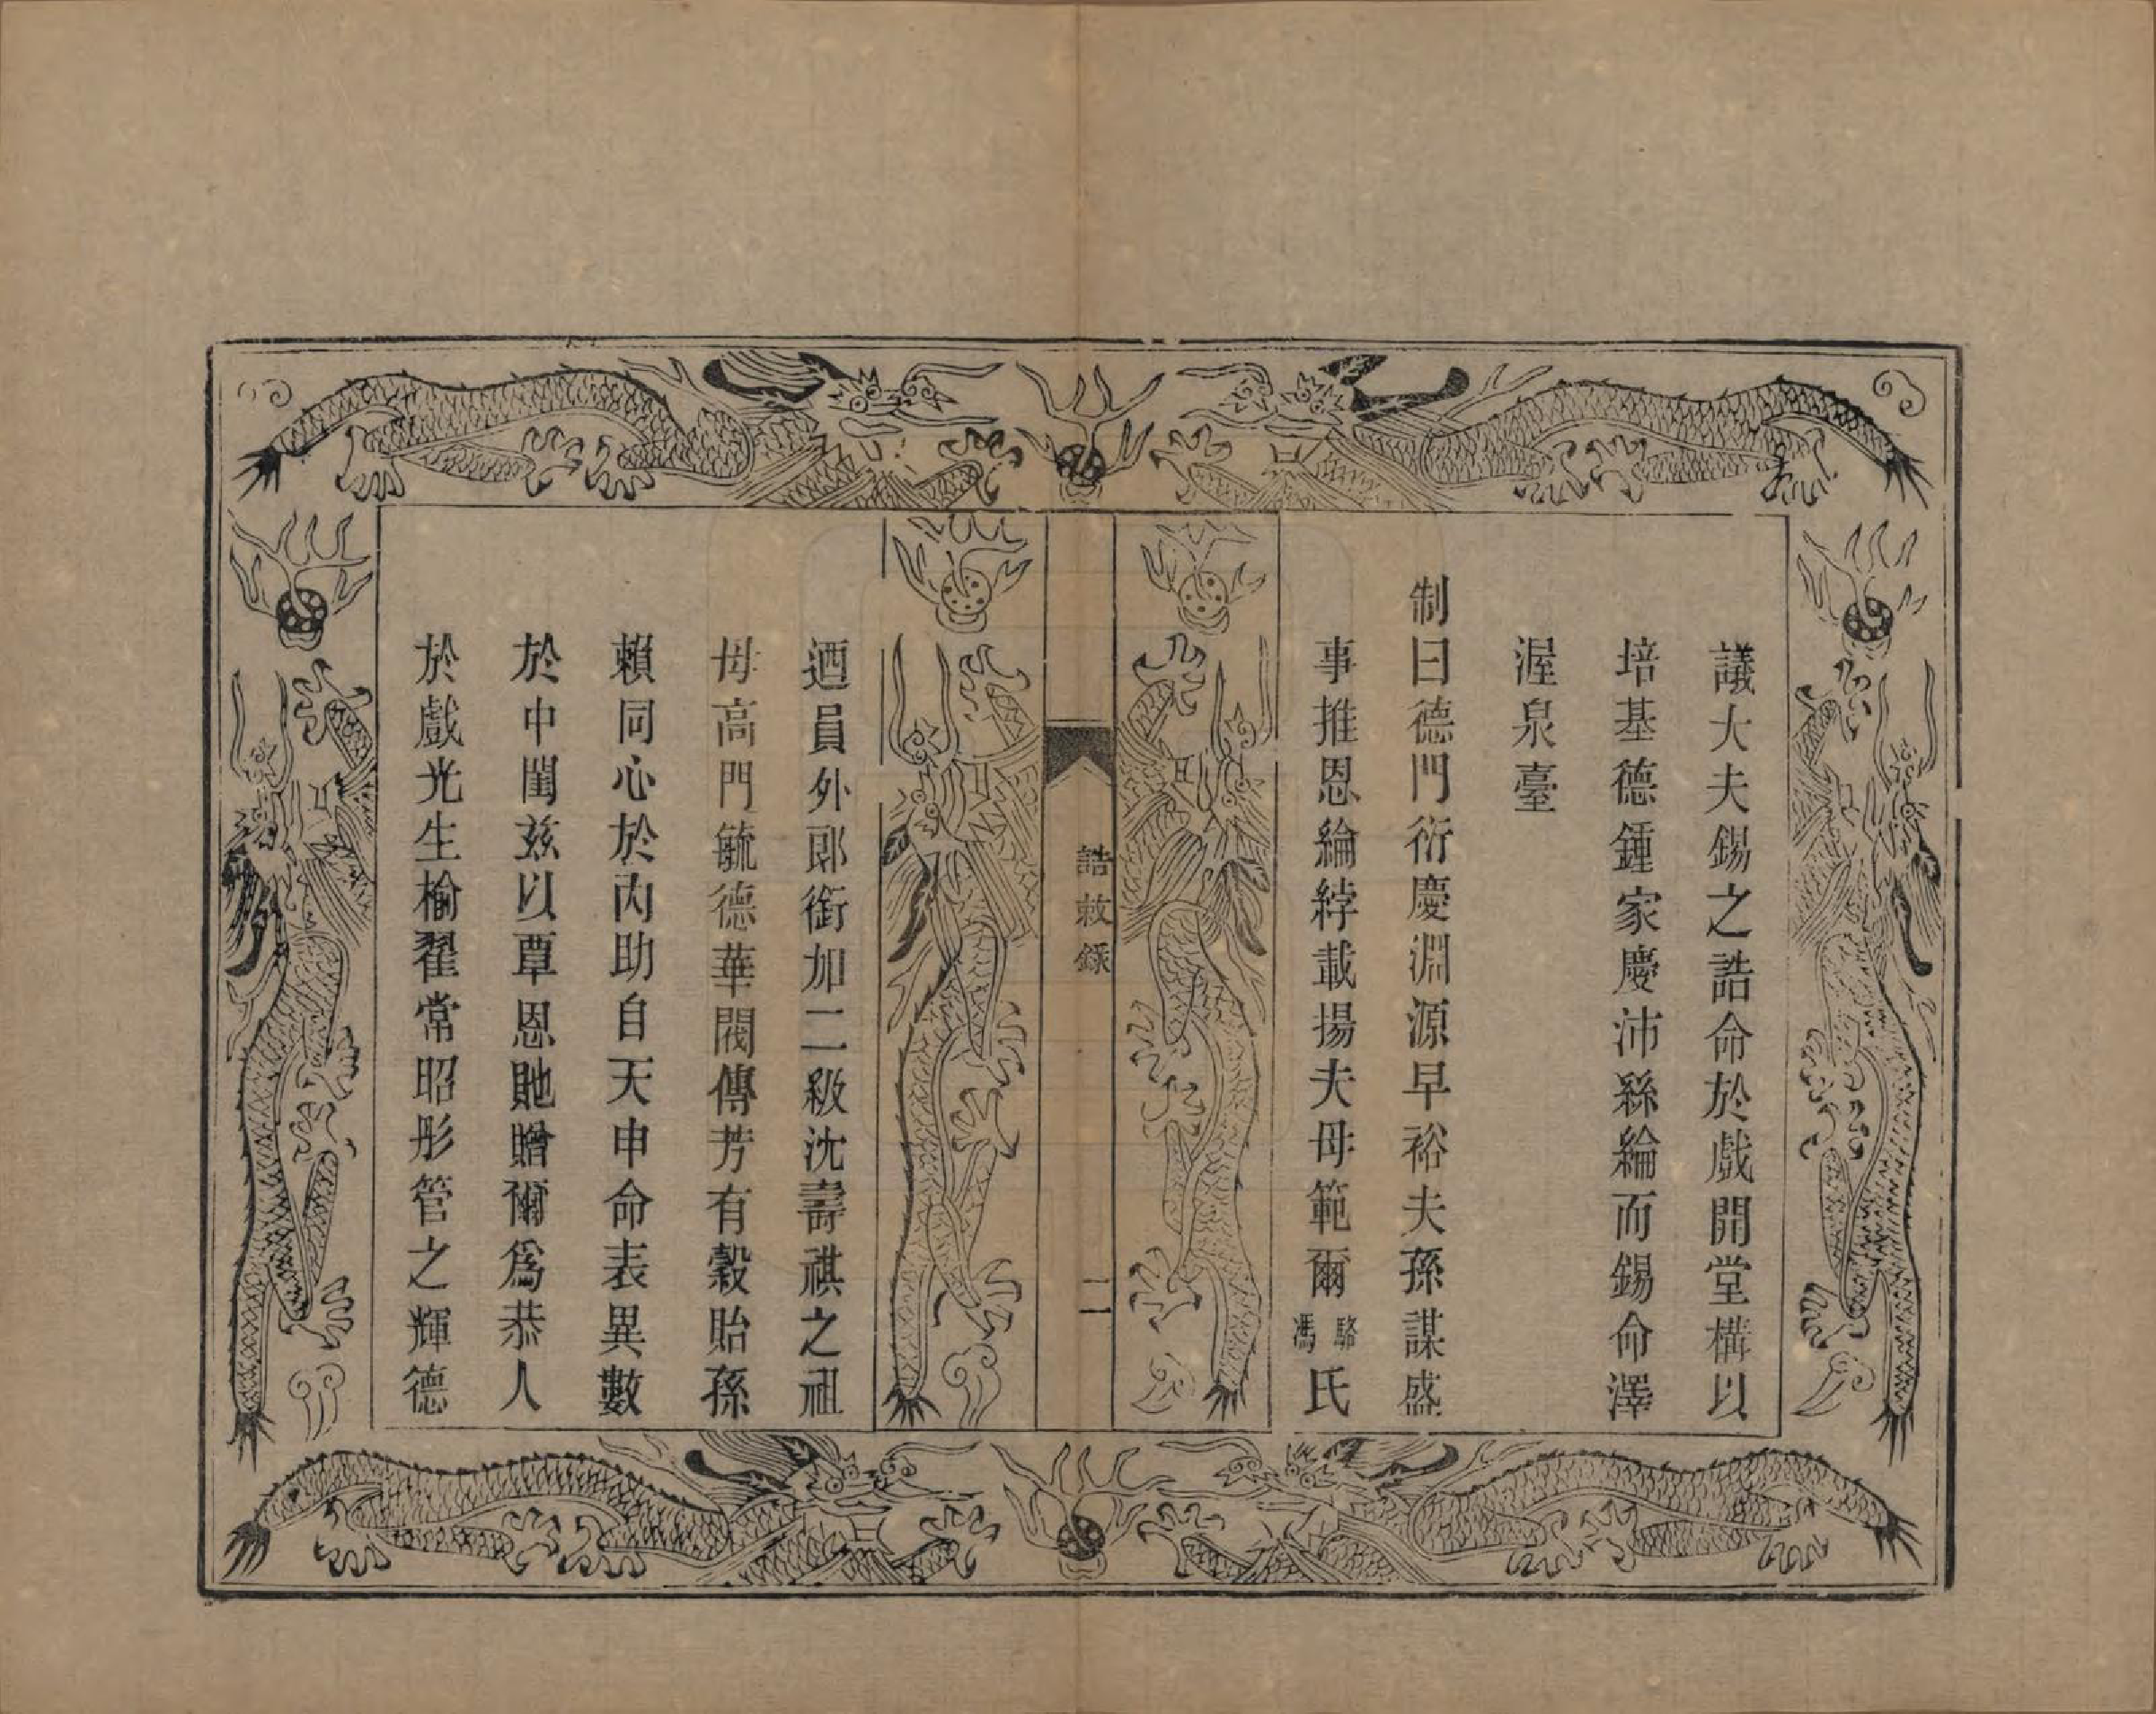 議大夫錫之誥命於戲開堂構以
培基德鍾家慶沛絲綸而錫命澤
渥泉臺
制曰德門衍慶淵源早裕夫孫謀盛
事推恩綸綍載揚夫母範爾駱馮氏
誥敕錄
二
迺員外郎銜加二級沈壽祺之祖
母高門毓德華閥傳芳有榖貽孫
賴同心於內助自天申命表異數
於中閨茲以覃恩貤贈爾爲恭人
於戲光生褕翟常昭彤管之輝德